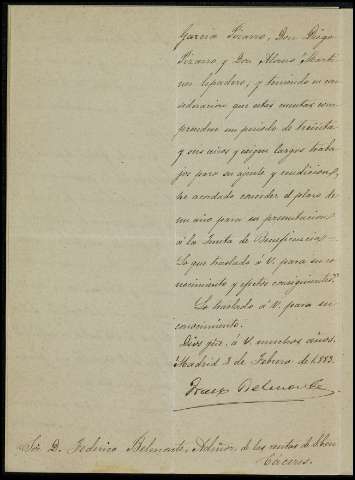 Garcia Pizarro, Don Diego
Pizarro y Don Alonso Marti
nez Cepadero, y teniendo en con
sideracion que estas cuentas com
prenden un periodo de treinta
y seis años y exigen largos traba
jos para su ajuste y rendicion,
he acordado conceder el plazo de
un año para su presentacion
á la Junta de Beneficencia =
Lo que traslado á V. para su co
nocimiento y efectos consiguientes."
Lo traslado á V. para su
conocimiento.
Dios gue. á V. muchos años.
Madrid 3 de Febrero de 1.883.
Belmonte
Sor. D. Federico Belmonte, Admor. de las rentas de
Cáceres.